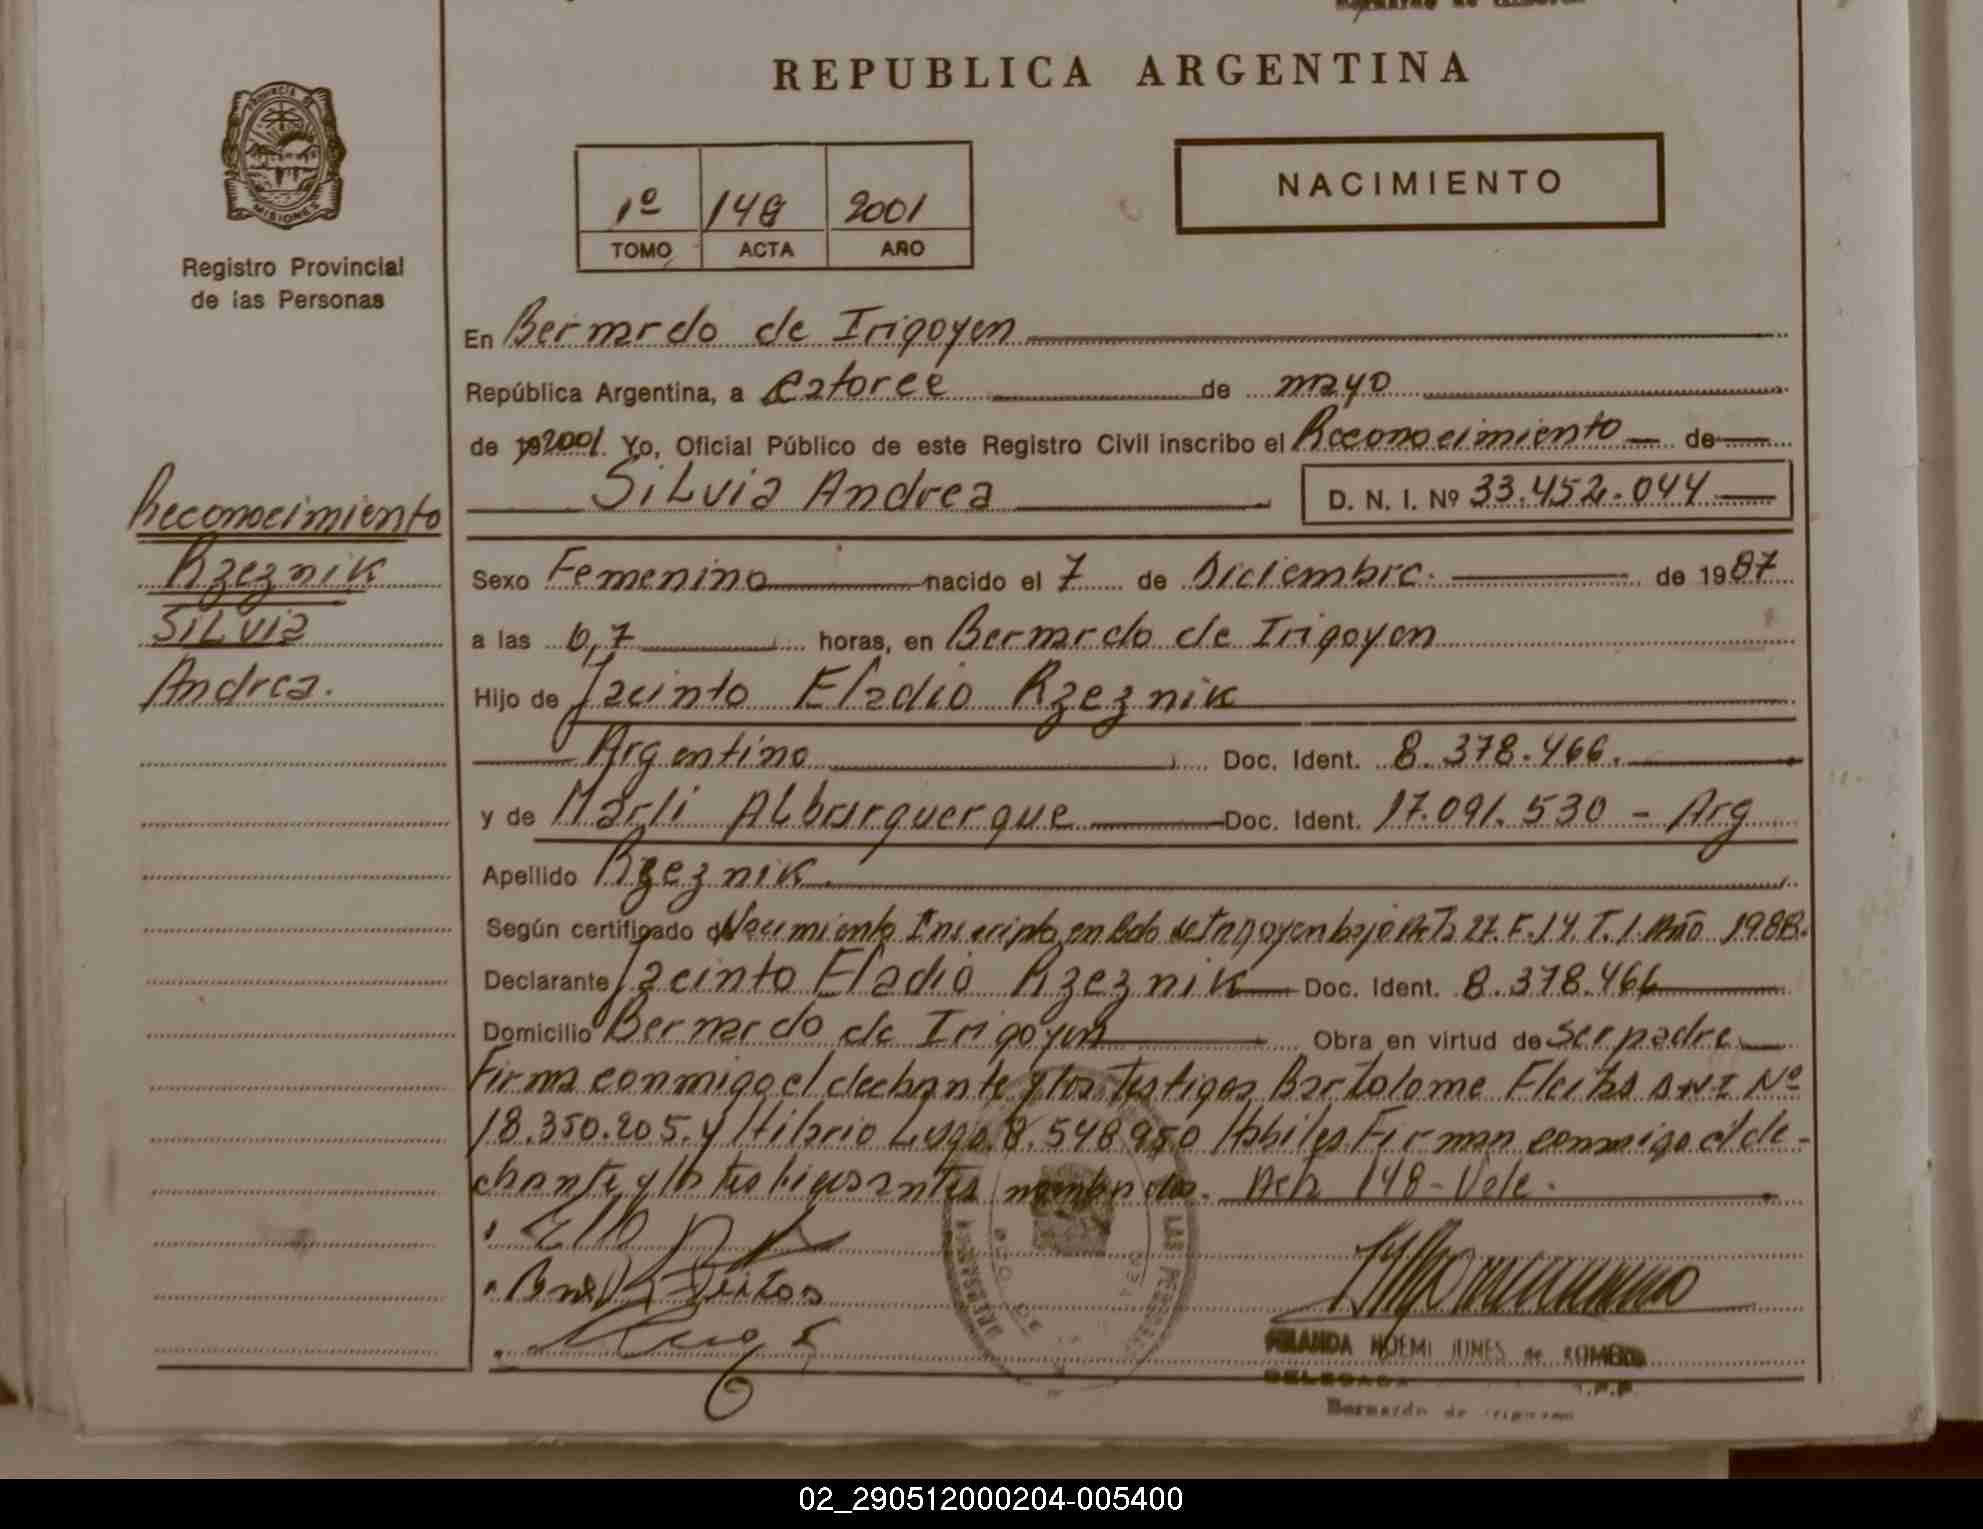 REPUBLICA ARGENTINA
PROVINCIA DE
MISIONES
Registro Provincial
de las Personas
1º 148 2001
TOMO ACTA AÑO
NACIMIENTO
En Bernardo de Irigoyen
República Argentina, a Catorce de mayo
de 19 2001. Yo, Oficial Público de este Registro Civil inscribo el Reconocimiento de
Silvia Andrea D. N. I. Nº 33.452.044
Reconocimiento
Rzeznik
Silvia
Andrea.
Sexo Femenino nacido el 7 de Diciembre. de 1987
a las 6,7 horas, en Bernardo de Irigoyen
Hijo de Jacinto Eladio Rzeznik
Argentino Doc. Ident. 8.378.466.
y de Marli Alburquerque Doc. Ident. 17.091.530 - Arg
Apellido Rzeznik.
Según certificado de Nacimiento Inscripto en Bdo de Irigoyen bajo Acta 27. F. 14. T. 1. Año 1988.
Declarante Jacinto Eladio Rzeznik Doc. Ident. 8.378.466
Domicilio Bernardo de Irigoyen Obra en virtud de ser padre
Firma conmigo el declarante y los testigos Bartolome Fleitas DNI Nº
18.350.205. y Hilario Lugo 8.548.950 Habiles Firman conmigo el de-
clarante y los testigos antes nombrados. Acta 148 - Vale.
LAS PERSONAS
MIRANDA NOEMI JUNES de ROMERO
DELEGADA
Bernardo de Irigoyen
02_290512000204-005400